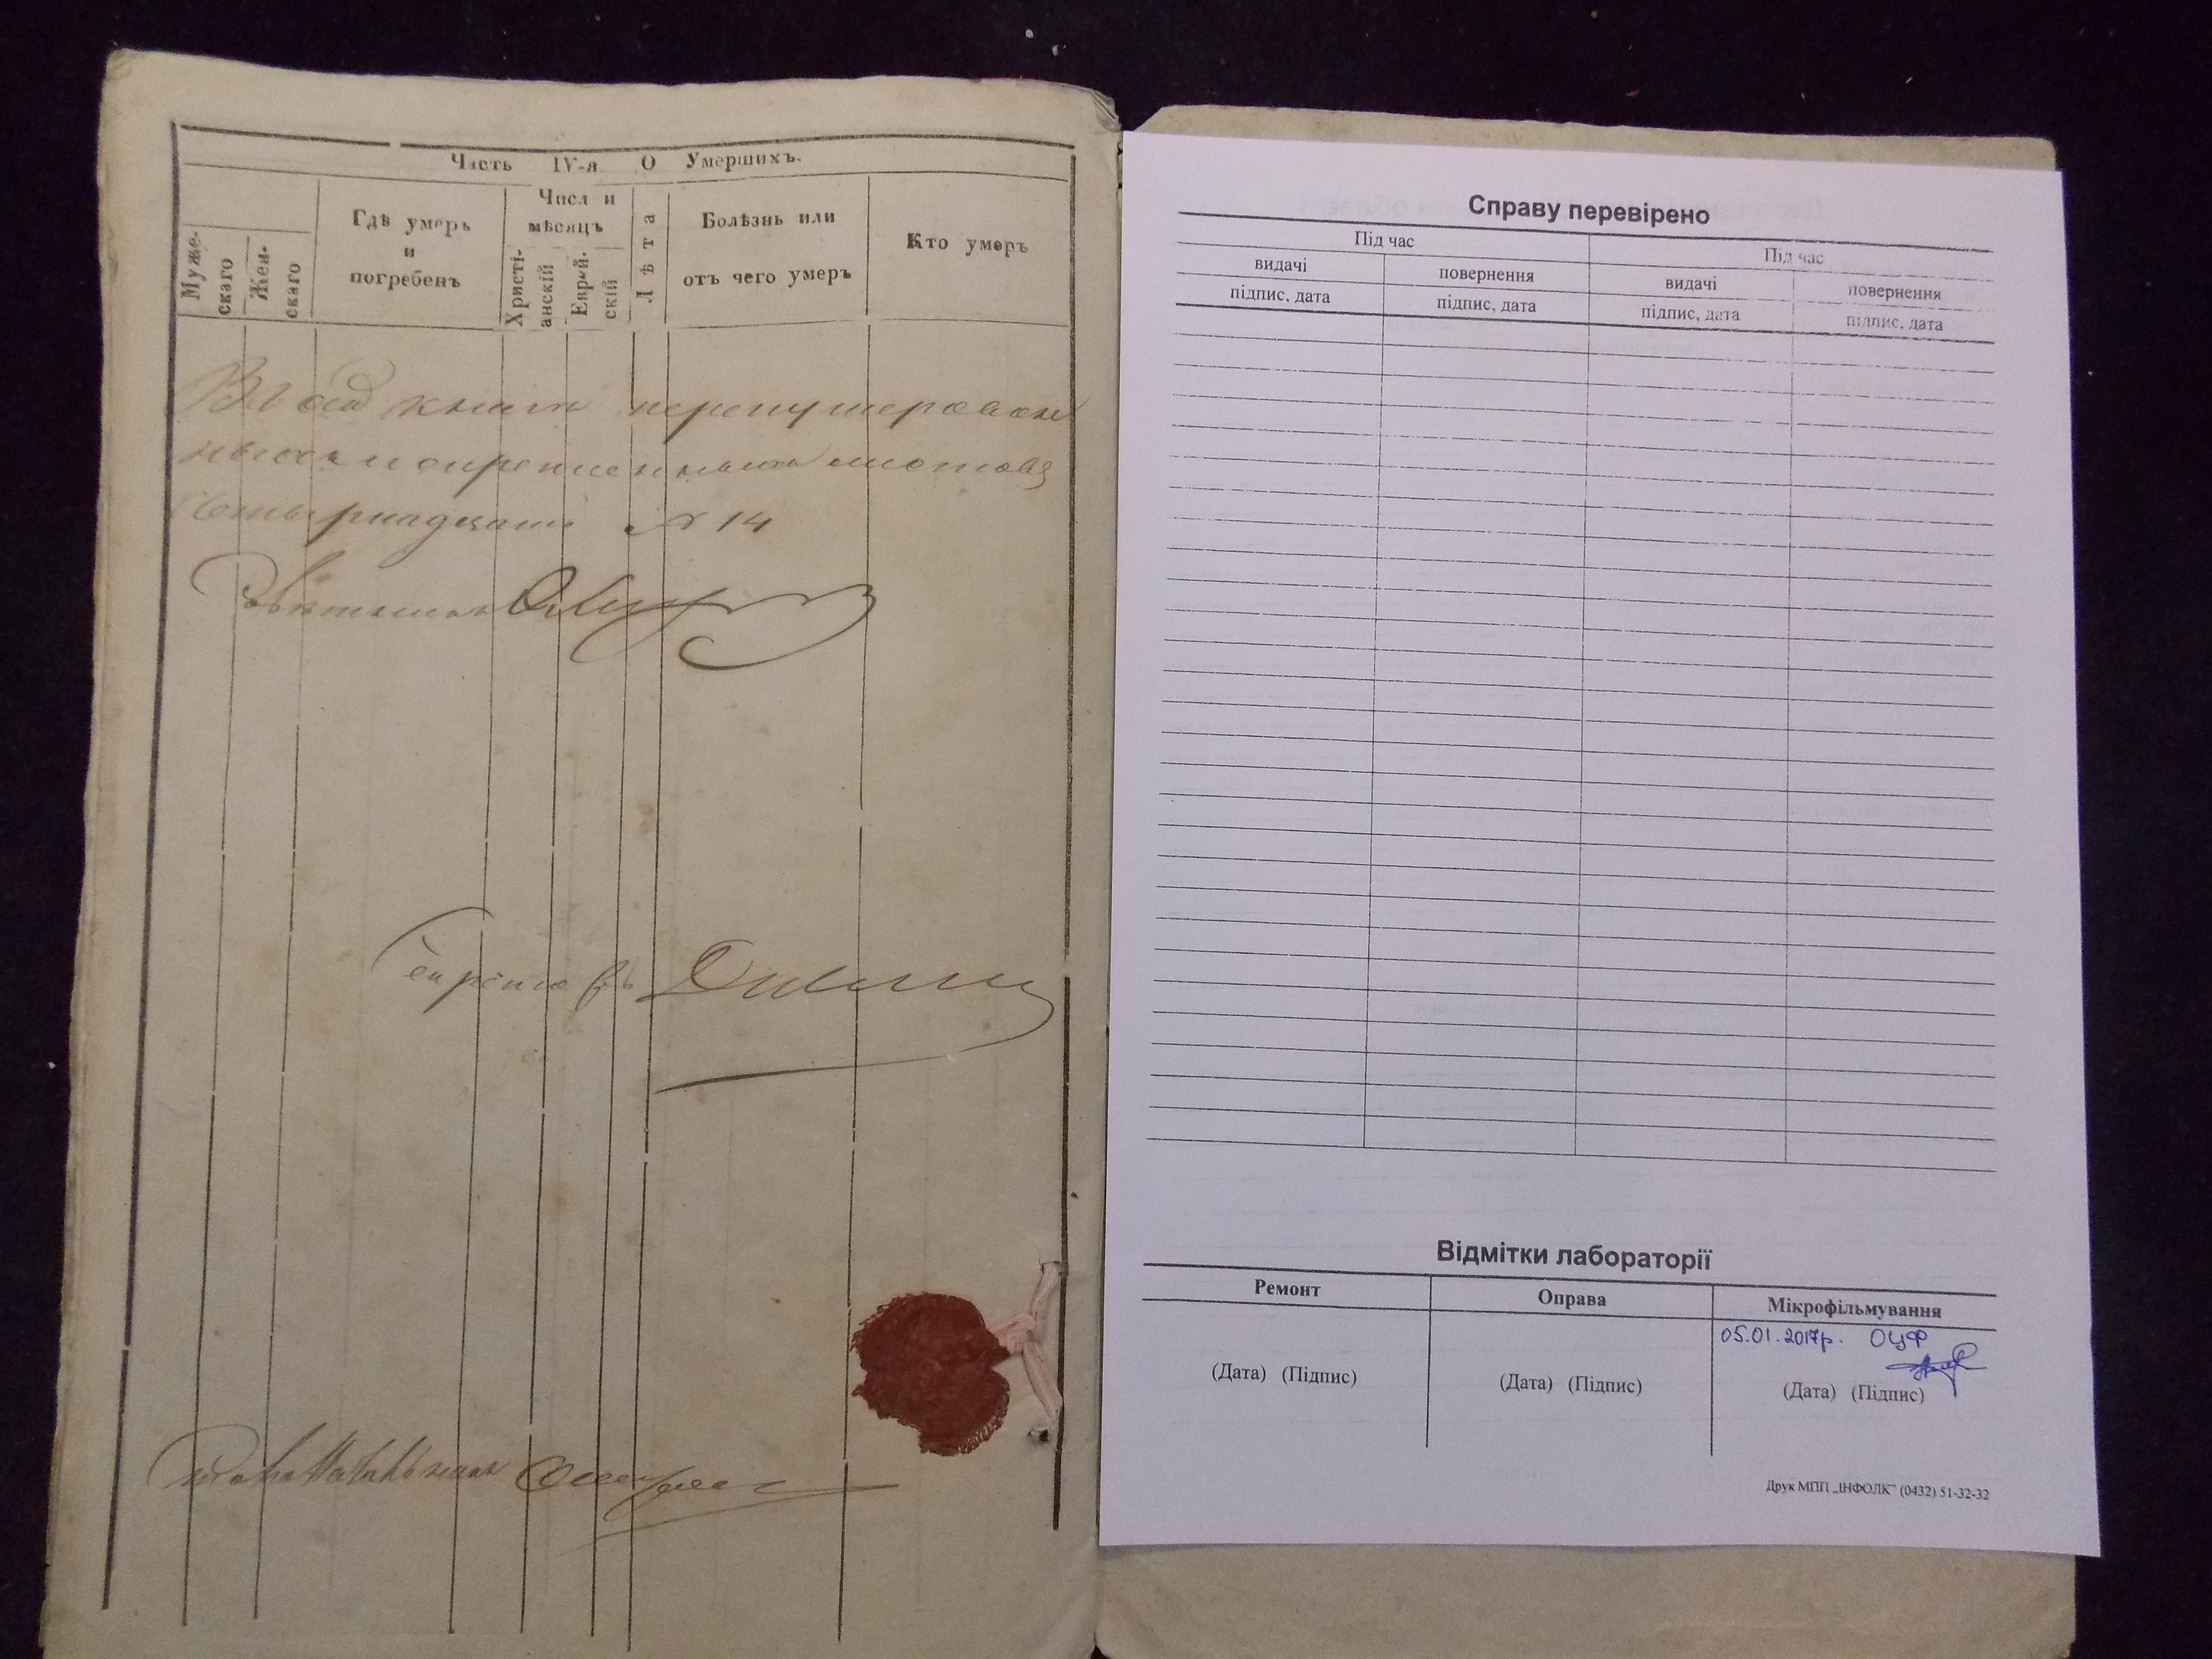 Часть IV-я О Умершихъ.
Муже-
скаго
Жен-
скаго
Гдѣ умерь
и
погребенъ
Числ и
мѣсяцъ
Христі-
анскій
Еврей-
скій
Лѣта
Болѣзнь или
отъ чего умеръ
Кто умеръ
Въ сей книги перенумерован
ныхъ и скрепленныхъ листовъ
Четырнадцать № 14
Ратманъ
Справу перевірено
Під час
Під час
видачі
повернення
видачі
повернення
підпис, дата
підпис, дата
підпис, дата
підпис, дата
Відмітки лабораторії
Ремонт
Оправа
Мікрофільмування
05.01.2017р. ОЦФ
(Дата) (Підпис)
(Дата) (Підпис)
(Дата) (Підпис)
Друк МПП „ІНФОЛК" (0432) 51-32-32